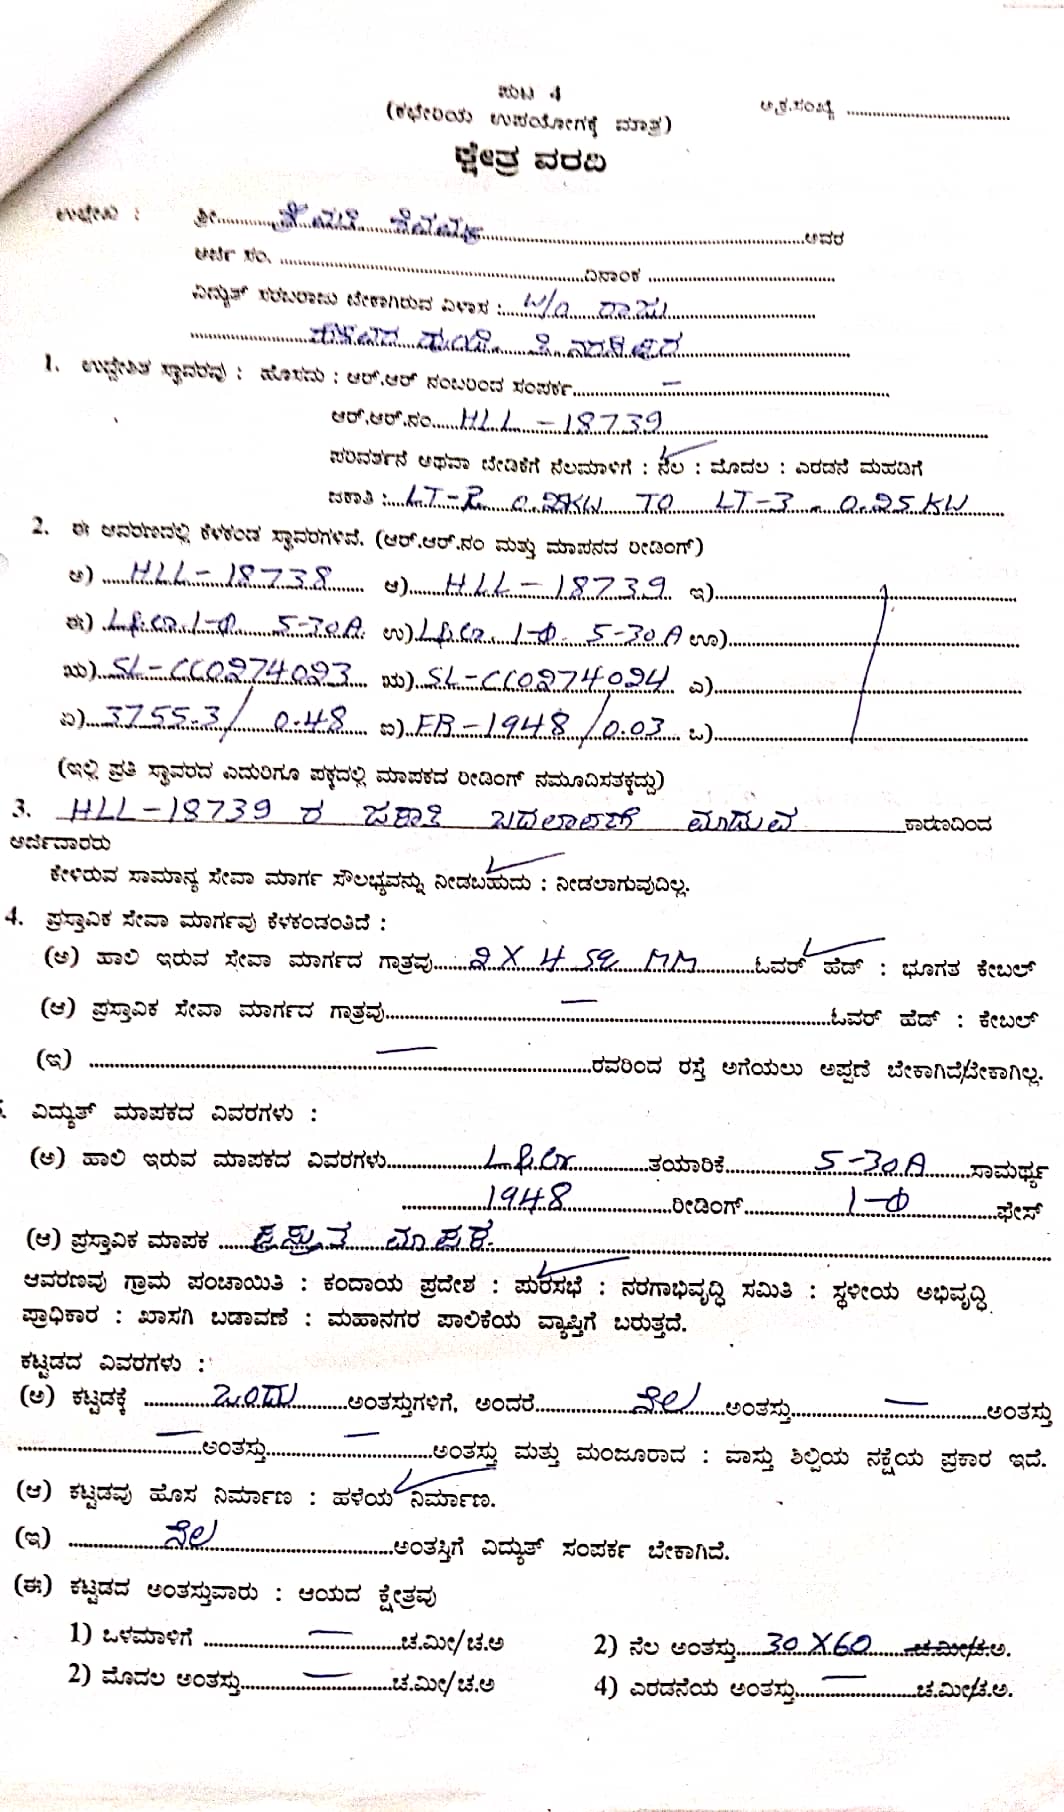 ಪುಟ 4
(ಕಛೇರಿಯ ಉಪಯೋಗಕ್ಕೆ ಮಾತ್ರ)
ಅ.ಕ್ರ.ಸಂಖ್ಯೆ ....................
ಕ್ಷೇತ್ರ ವರದಿ
ಉಲ್ಲೇಖ : ಶ್ರೀ.................... ಅವರ
ಅರ್ಜಿ ಸಂ. .................... ದಿನಾಂಕ ....................
ವಿದ್ಯುತ್ ಸರಬರಾಜು ಬೇಕಾಗಿರುವ ವಿಳಾಸ : W/o ರಾಜು
ತಿ ನರಸೀಪುರ
1. ಉದ್ದೇಶಿತ ಸ್ಥಾವರವು : ಹೊಸದು : ಆರ್.ಆರ್ ನಂಬರಿಂದ ಸಂಪರ್ಕ — 
ಆರ್.ಆರ್.ನಂ. HLL - 18739
ಪರಿವರ್ತನೆ ಅಥವಾ ಬೇಡಿಕೆಗೆ ನೆಲಮಾಳಿಗೆ : ನೆಲ : ಮೊದಲ : ಎರಡನೆ ಮಹಡಿಗೆ
ಜಕಾತಿ : LT-2 0.2KW TO LT-3 - 0.25 KW
2. ಈ ಆವರಣದಲ್ಲಿ ಕೆಳಕಂಡ ಸ್ಥಾವರಗಳಿವೆ. (ಆರ್.ಆರ್.ನಂ ಮತ್ತು ಮಾಪನದ ರೀಡಿಂಗ್)
ಅ) HLL - 18738 ಆ) HLL - 18739 ಇ)
ಈ) L&G 1-Φ 5-30A ಉ) L&G 1-Φ 5-30A ಊ)
ಋ) SL-CC0274023 ಋ) SL-CC0274024 ಎ)
ಏ) 3755.3 / 0.48 ಐ) FR-1948 / 0.03 ಒ)
(ಇಲ್ಲಿ ಪ್ರತಿ ಸ್ಥಾವರದ ಎದುರಿಗೂ ಪಕ್ಕದಲ್ಲಿ ಮಾಪಕದ ರೀಡಿಂಗ್ ನಮೂದಿಸತಕ್ಕದ್ದು)
3. HLL-18739 ರ ಜಕಾತಿ ಬದಲಾವಣೆ ಮಾಡುವ ಕಾರಣದಿಂದ
ಅರ್ಜಿದಾರರು
ಕೇಳಿರುವ ಸಾಮಾನ್ಯ ಸೇವಾ ಮಾರ್ಗ ಸೌಲಭ್ಯವನ್ನು ನೀಡಬಹುದು : ನೀಡಲಾಗುವುದಿಲ್ಲ.
4. ಪ್ರಸ್ತಾವಿಕ ಸೇವಾ ಮಾರ್ಗವು ಕೆಳಕಂಡಂತಿದೆ :
(ಅ) ಹಾಲಿ ಇರುವ ಸೇವಾ ಮಾರ್ಗದ ಗಾತ್ರವು 2 X 4 SQ MM ಓವರ್ ಹೆಡ್ : ಭೂಗತ ಕೇಬಲ್
(ಆ) ಪ್ರಸ್ತಾವಿಕ ಸೇವಾ ಮಾರ್ಗದ ಗಾತ್ರವು — ಓವರ್ ಹೆಡ್ : ಕೇಬಲ್
(ಇ) — ರವರಿಂದ ರಸ್ತೆ ಅಗೆಯಲು ಅಪ್ಪಣೆ ಬೇಕಾಗಿದೆ/ಬೇಕಾಗಿಲ್ಲ.
ವಿದ್ಯುತ್ ಮಾಪಕದ ವಿವರಗಳು :
(ಅ) ಹಾಲಿ ಇರುವ ಮಾಪಕದ ವಿವರಗಳು L&G ತಯಾರಿಕೆ 5-30A ಸಾಮರ್ಥ್ಯ
1948 ರೀಡಿಂಗ್ 1-Φ ಫೇಸ್
(ಆ) ಪ್ರಸ್ತಾವಿಕ ಮಾಪಕ ಪ್ರಸ್ತುತ ಮಾಪಕ
ಆವರಣವು ಗ್ರಾಮ ಪಂಚಾಯಿತಿ : ಕಂದಾಯ ಪ್ರದೇಶ : ಪುರಸಭೆ : ನರಗಾಭಿವೃದ್ಧಿ ಸಮಿತಿ : ಸ್ಥಳೀಯ ಅಭಿವೃದ್ಧಿ
ಪ್ರಾಧಿಕಾರ : ಖಾಸಗಿ ಬಡಾವಣೆ : ಮಹಾನಗರ ಪಾಲಿಕೆಯ ವ್ಯಾಪ್ತಿಗೆ ಬರುತ್ತದೆ.
ಕಟ್ಟಡದ ವಿವರಗಳು :
(ಅ) ಕಟ್ಟಡಕ್ಕೆ ಒಂದು ಅಂತಸ್ತುಗಳಿಗೆ, ಅಂದರೆ ನೆಲ ಅಂತಸ್ತು — ಅಂತಸ್ತು
— ಅಂತಸ್ತು — ಅಂತಸ್ತು ಮತ್ತು ಮಂಜೂರಾದ : ವಾಸ್ತು ಶಿಲ್ಪಿಯ ನಕ್ಷೆಯ ಪ್ರಕಾರ ಇದೆ.
(ಆ) ಕಟ್ಟಡವು ಹೊಸ ನಿರ್ಮಾಣ : ಹಳೆಯ ನಿರ್ಮಾಣ.
(ಇ) ನೆಲ ಅಂತಸ್ತಿಗೆ ವಿದ್ಯುತ್ ಸಂಪರ್ಕ ಬೇಕಾಗಿದೆ.
(ಈ) ಕಟ್ಟಡದ ಅಂತಸ್ತುವಾರು : ಆಯದ ಕ್ಷೇತ್ರವು
1) ಒಳಮಾಳಿಗೆ — ಚ.ಮೀ/ಚ.ಅ 2) ನೆಲ ಅಂತಸ್ತು 30 X 60 ಚ.ಮೀ/ಚ.ಅ.
2) ಮೊದಲ ಅಂತಸ್ತು — ಚ.ಮೀ/ಚ.ಅ 4) ಎರಡನೆಯ ಅಂತಸ್ತು — ಚ.ಮೀ/ಚ.ಅ.